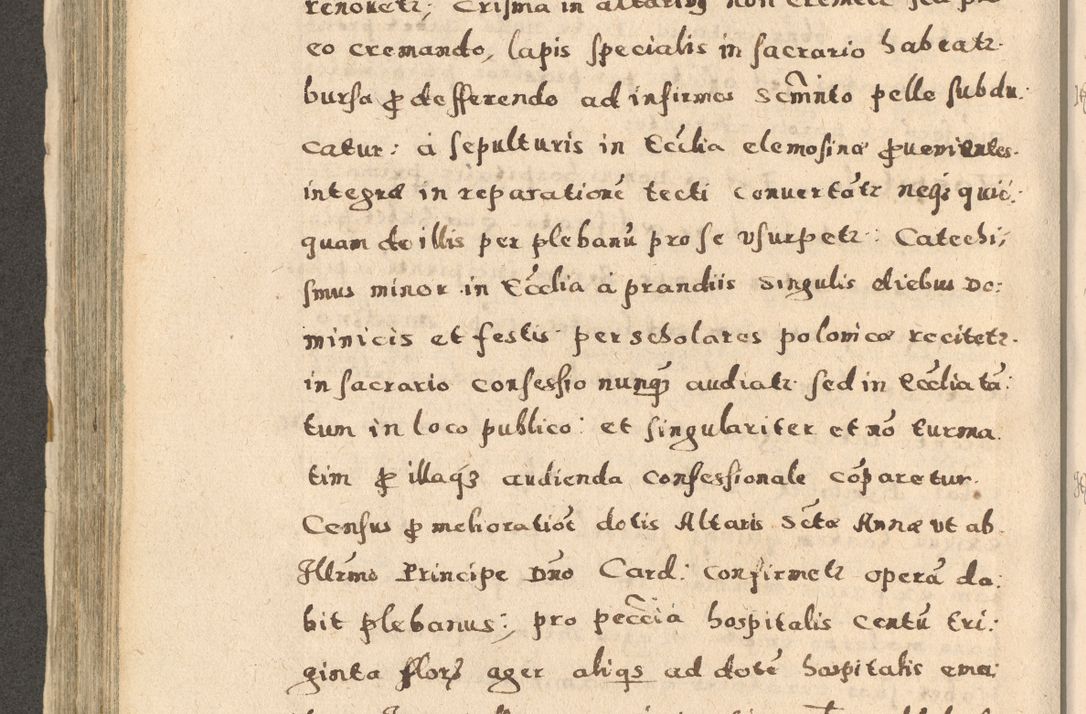 renouetr; Crisma in altarib9 non cremetr sed pro
eo cremando, lapis specialis in sacrario habeatr
bursa ꝓ defferendo ad infirmos Scm̃nto pelle subdu:
catur: à sepulturis in Eccĺia elemosinæ ꝓuenientes
integræ in reparationē tecti conuertātr neq3 quic:
quam de illis per plebanū pro se vsurpetr: Catechi;
smus minor in Eccĺia à prandiis singulis diebus Do:
minicis et festis per scholares polonicæ recitetr.
in sacrario confessio nunq3 audiatr sed in Eccĺia tā:
tum in loco publico: et singulariter et nō turma
tim ꝓ illaq3 audienda confessionale cōparetur.
Census ꝓ melioratiōe dotis Altaris Sctæ Annæ vt ab
Illrmo Principe Dño Card: confirmetr operā da:
bit plebanus; pro peccīa hospitalis centū tri:
ginta flor3 ager aliqs ad dotē hospitalis ema: